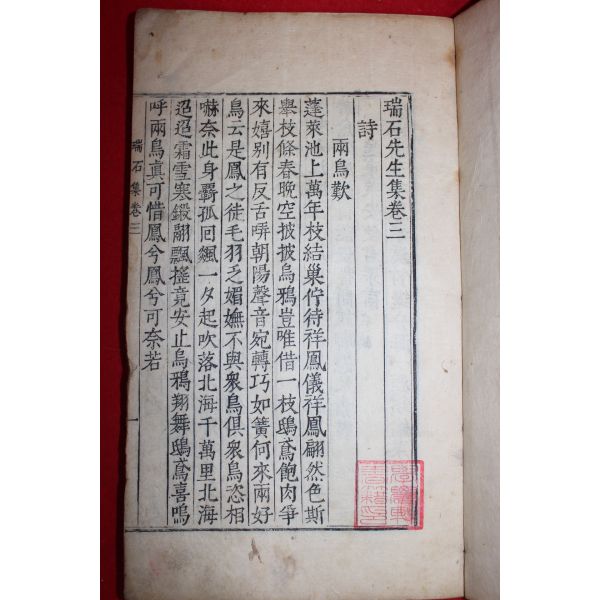 瑞石先生集卷三
詩
兩鳥歎
蓬萊池上萬年枝結巢佇待祥鳳儀祥鳳翩然色斯
擧枝條春晩空披披烏鴉豈唯借一枝鴟鳶飽肉爭
來嬉别有反舌呼朝陽聲音宛轉巧如簧何來兩好
鳥云是鳳之徒毛羽乏媚嫵不與衆鳥俱衆鳥恣相
嚇奈此身羇孤回飇一夕起吹落北海千萬里北海
迢迢霜雪塞鍛翮飄搖竟安止烏鴉翔舞鴟鳶喜嗚
呼兩鳥眞可惜鳳兮鳳兮可奈若
瑞石集卷三
一